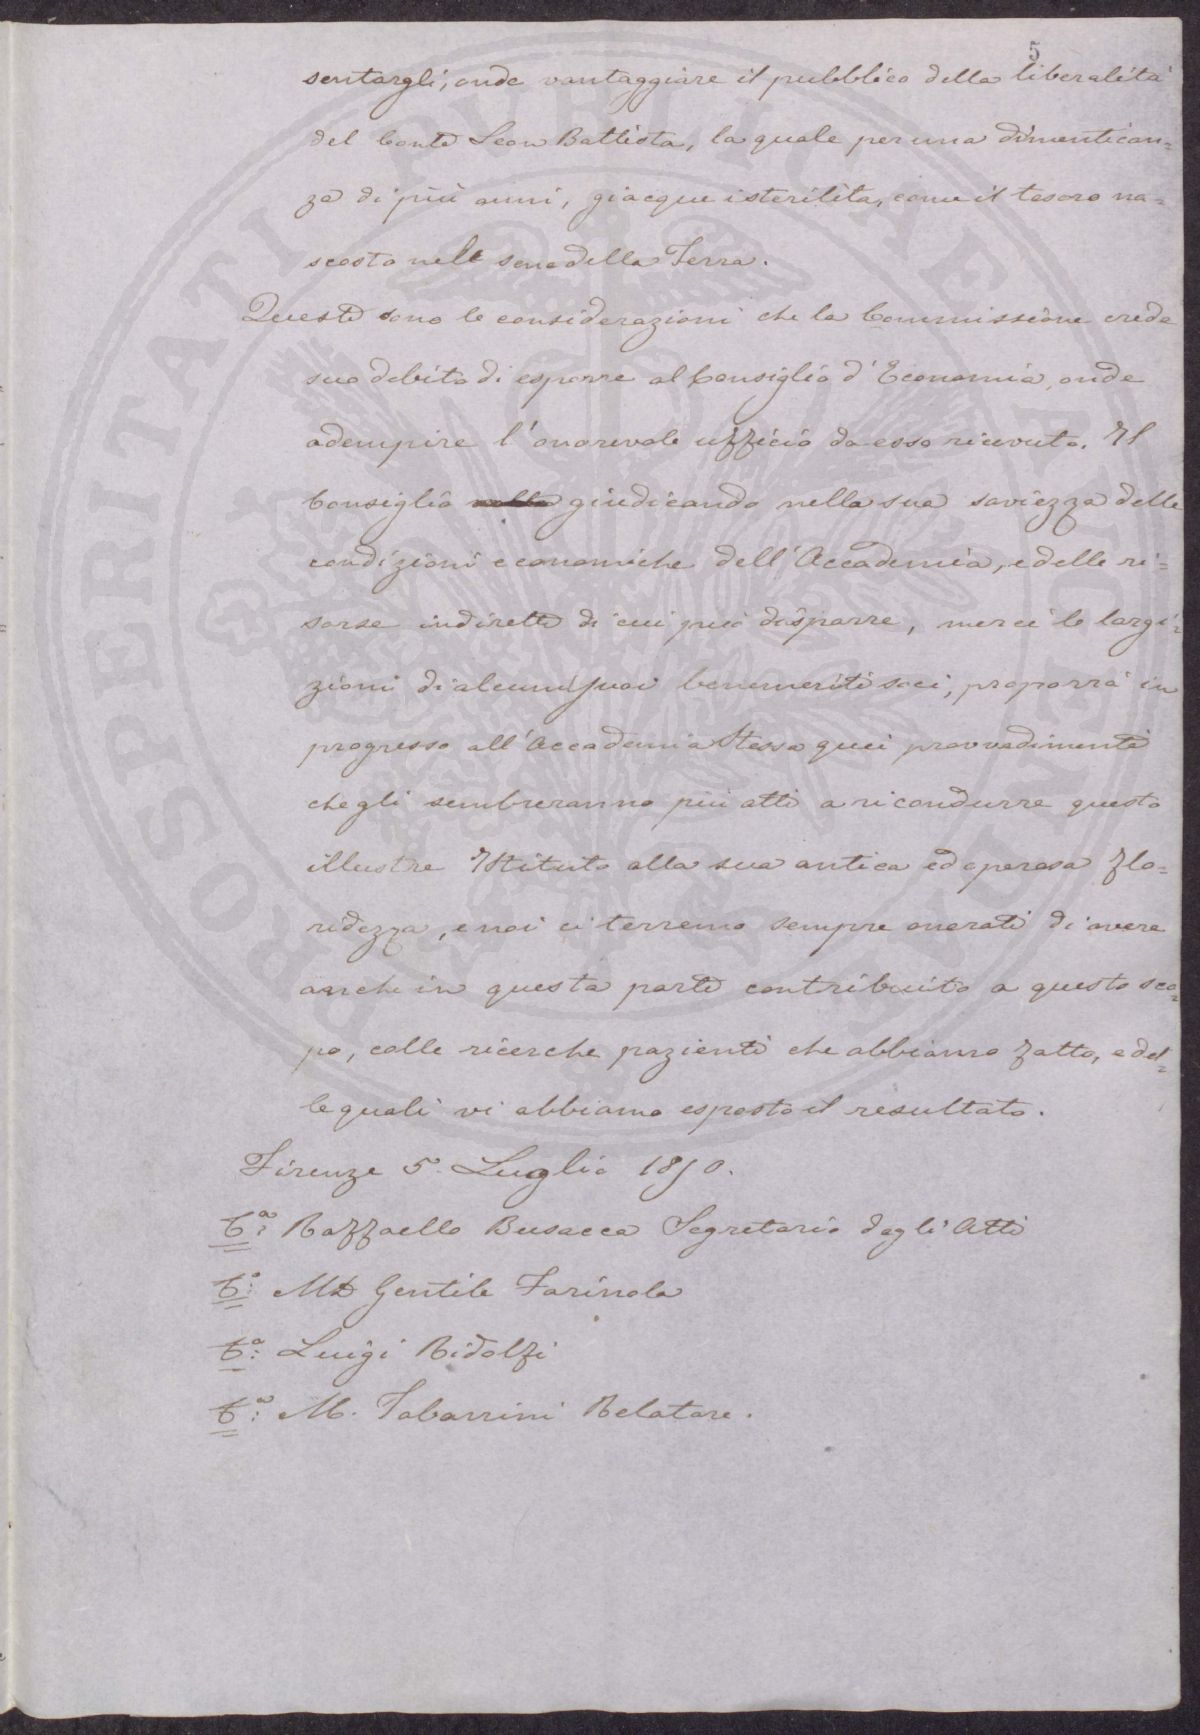 5
sentargli, onde vantaggiare il pubblico della liberalità
del Conte Leon Battista, la quale per una dimentican=
za di più anni, giacque isterilita, come il tesoro na=
scosto nell seno della Terra.
Queste sono le considerazioni che la Commissione crede
suo debito di esporre al Consiglio d'Economia, onde
adempire l'onorevole ufficio da esso ricevuto. Il
Consiglio giudicando nella sua saviezza delle
condizioni economiche dell'Accademia, e delle ri=
sorse indirette di cui può disporre, mercè le largi=
zioni di alcuni suoi benemeriti soci, proporrà in
progresso all'Accademia Stessa quei provvedimenti
che gli sembreranno più atti a ricondurre questo
illustre Istituto alla sua antica ed operosa flo=
ridezza, e noi ci terremo sempre onorati di avere
anche in questa parte contribuito a questo sco=
po, colle ricerche pazienti che abbiamo fatto, e del=
le quali vi abbiamo esposto il resultato.
Firenze 5. Luglio 1850.
Raffaello Busacca Segretario degli Atti
Gentile Farinola
Luigi Ridolfi
M. Tabarrini Relatore.
PROSPERITATI PUBLICAE AUGENDAE